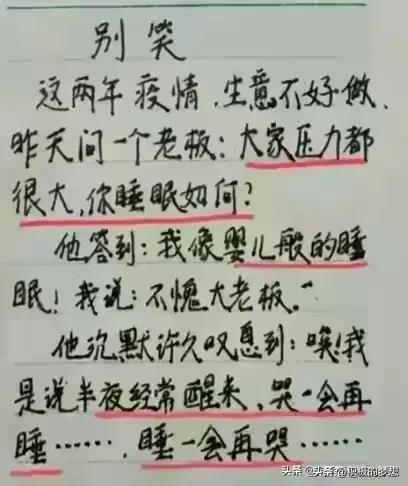 别笑
这两年疫情,生意不好做,
昨天问一个老板:大家压力都
很大,你睡眠如何?
他答到:我像婴儿般的睡
眠!我说:不愧大老板。"
他沉默许久叹息到:唉!我
是说半夜经常醒来,哭一会再
睡……,睡一会再哭……
头条 @积极的梦想